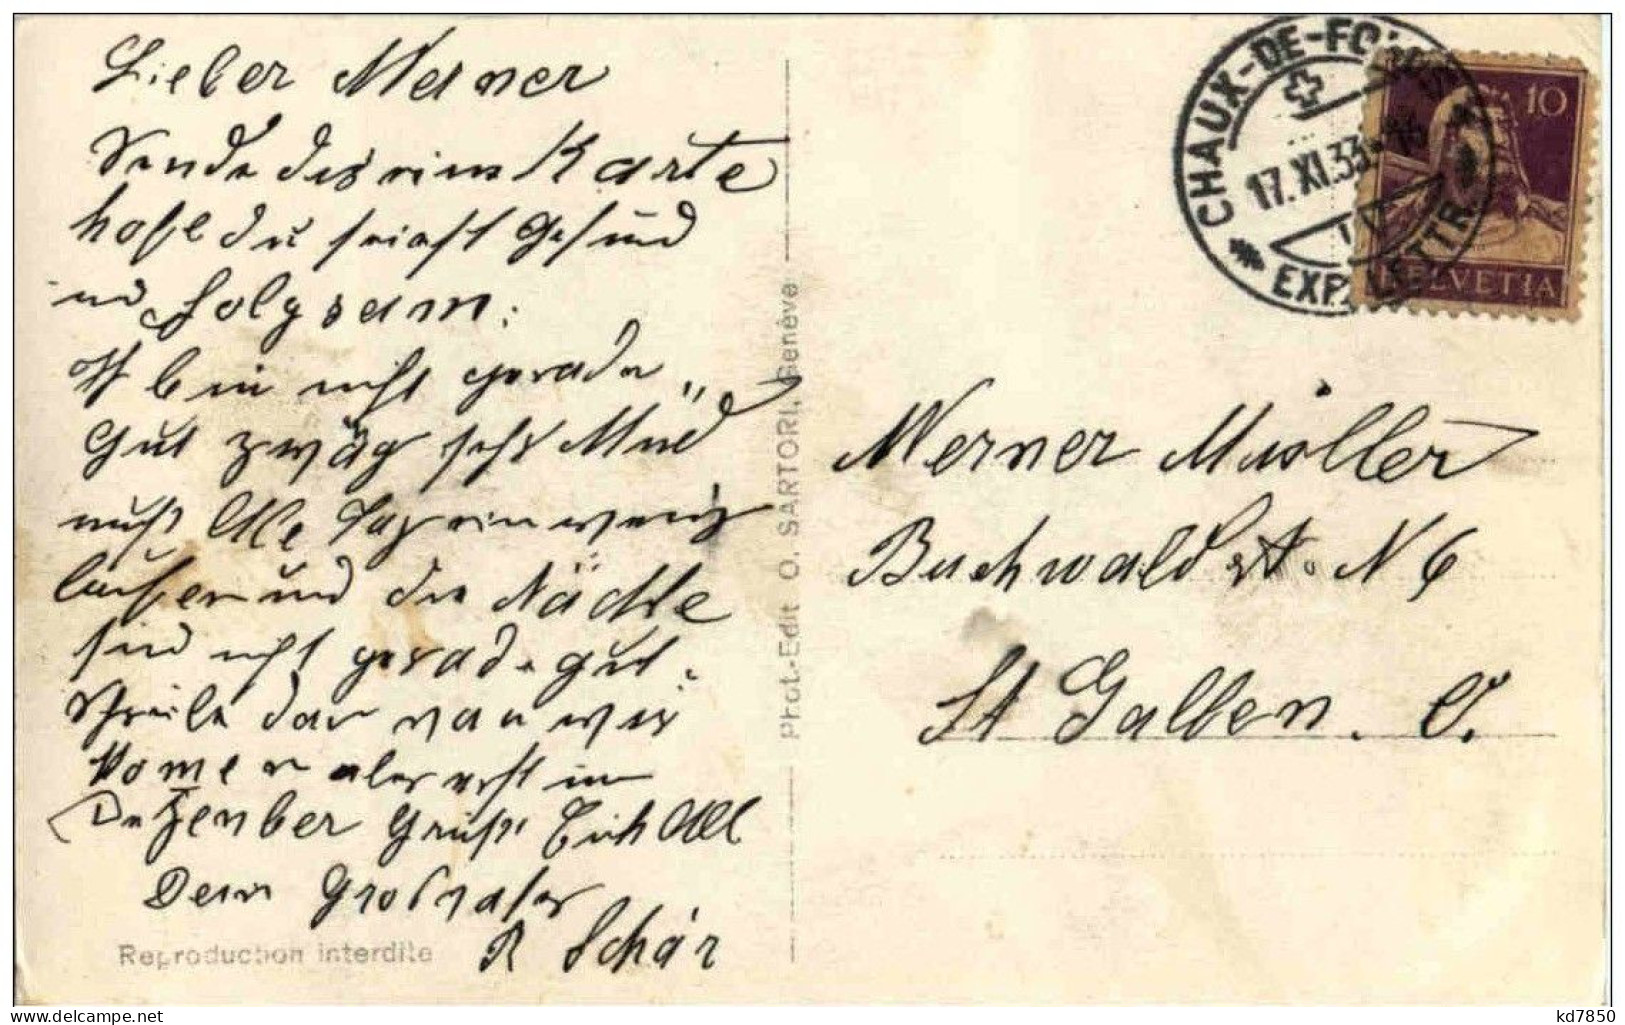 Lieber Werner
Sende dir eine Karte
hoffe du seiest Gesund
und folgsam:
Ich bin nicht gerade
Gut zwäg sehr Müd
muss Alle Tag ein wenig
laufen und die Nächte
sind nicht gerade gut.
Schreibe dan wan wir
komen aber erst im
Dezember Grüsse Euch All
Dein Grossvater
R Schär
Reproduction interdite
Phot.-Edit O. SARTORI, Genève
CHAUX-DE-FONDS
17.XI.33
EXP. LETTR.
10
HELVETIA
Werner Müller
Buchwaldst. N 6
St Gallen. O.
kd7850